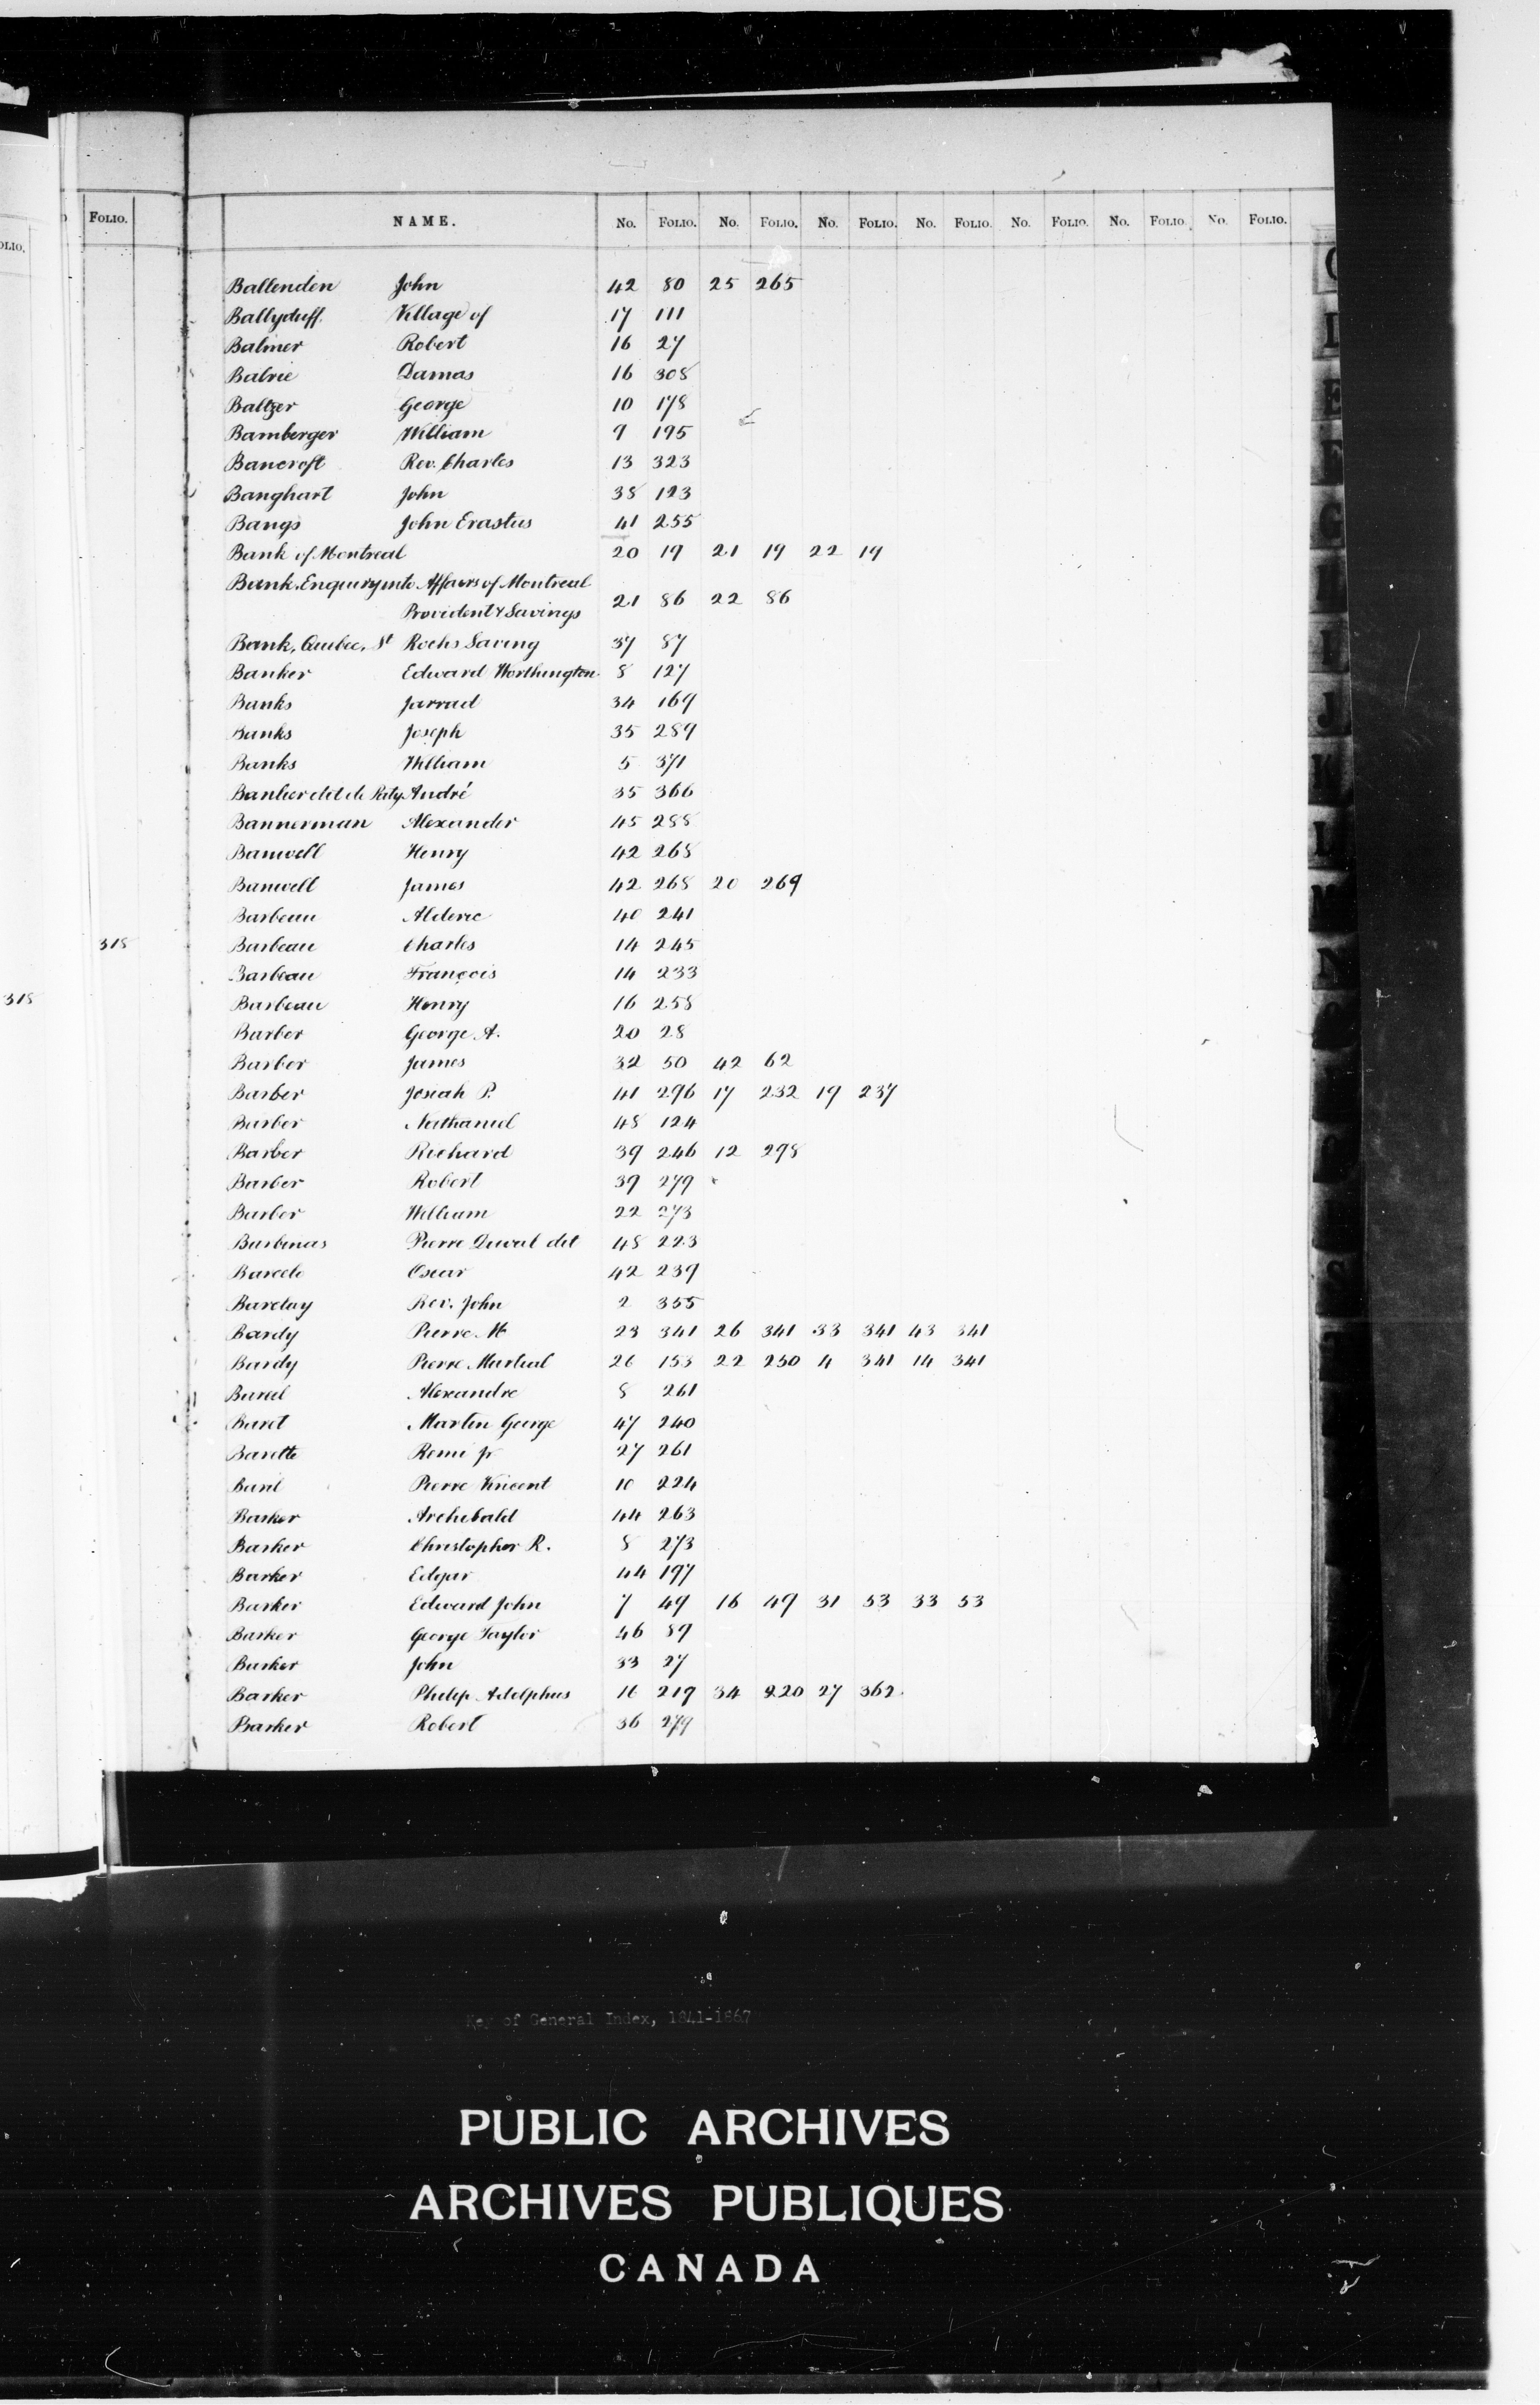 FOLIO.
OLIO.
318
318
NAME. No. FOLIO. No. FOLIO. No. FOLIO. No. FOLIO. No. FOLIO. No. FOLIO. No. FOLIO.
Ballenden John 42 80 25 265
Ballyduff Village of 17 111
Balmer Robert 16 27
Balrie Damas 16 308
Baltzer George 10 178
Bamberger William 9 195
Bancroft Rev. Charles 13 323
Banghart John 38 123
Bangs John Erastus 41 255
Bank of Montreal 20 19 21 19 22 19
Bank. Enquiry into Affairs of Montreal
Provident & Savings 21 86 22 86
Bank, Quebec, St Rochs Saving 37 87
Banker Edward Worthington 8 127
Banks Jarrad 34 169
Banks Joseph 35 289
Banks William 5 371
Banlier dit de Paty André 35 366
Bannerman Alexander 45 288
Banwell Henry 42 268
Banwell James 42 268 20 269
Barbeau Alderic 40 241
Barbeau Charles 14 245
Barbeau François 14 233
Barbeau Henry 16 258
Barber George A. 20 28
Barber James 32 50 42 62
Barber Josiah P. 41 296 17 232 19 237
Barber Nathaniel 48 124
Barber Richard 39 246 12 298
Barber Robert 39 279
Barber William 22 273
Barbinas Pierre Duval dit 48 223
Barcelo Oscar 42 239
Barclay Rev. John 2 355
Bardy Pierre M 23 341 26 341 33 341 43 341
Bardy Pierre Martial 26 153 22 250 4 341 14 341
Bareil Alexandre 8 261
Baret Martin George 47 240
Barette Remi Jr 27 261
Baril Pierre Vincent 10 224
Barker Archibald 44 263
Barker Christopher R. 8 273
Barker Edgar 44 197
Barker Edward John 7 49 16 49 31 53 33 53
Barker George Taylor 46 89
Barker John 33 27
Barker Philip Adolphus 16 219 34 220 27 362
Barker Robert 36 279
Key of General Index, 1841-1867
PUBLIC ARCHIVES
ARCHIVES PUBLIQUES
CANADA